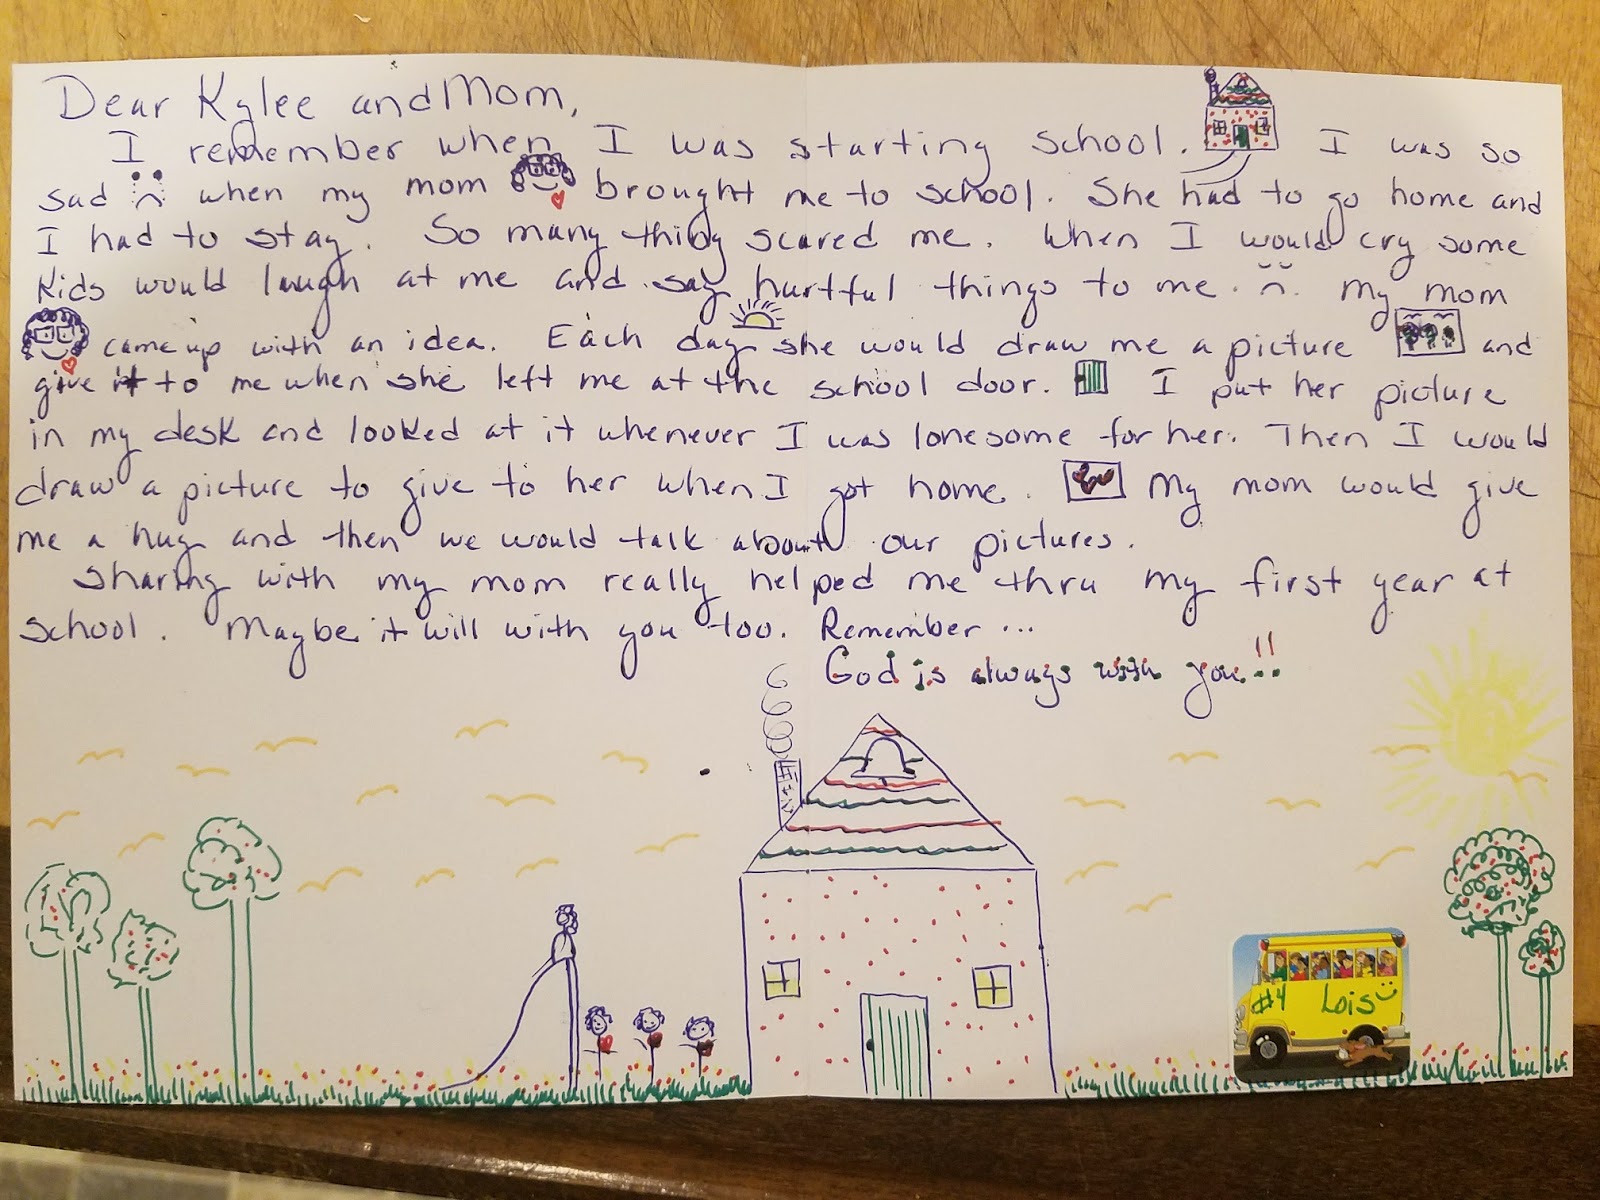 Dear Kylee and Mom,
I remember when I was starting school. I was so
sad when my mom brought me to school. She had to go home and
I had to stay. So many things scared me. When I would cry some
kids would laugh at me and say hurtful things to me. My mom
came up with an idea. Each day she would draw me a picture and
give it to me when she left me at the school door. I put her picture
in my desk and looked at it whenever I was lonesome for her. Then I would
draw a picture to give to her when I got home. My mom would give
me a hug and then we would talk about our pictures.
Sharing with my mom really helped me thru my first year at
school. Maybe it will with you too. Remember...
God is always with you!!
#4 Lois